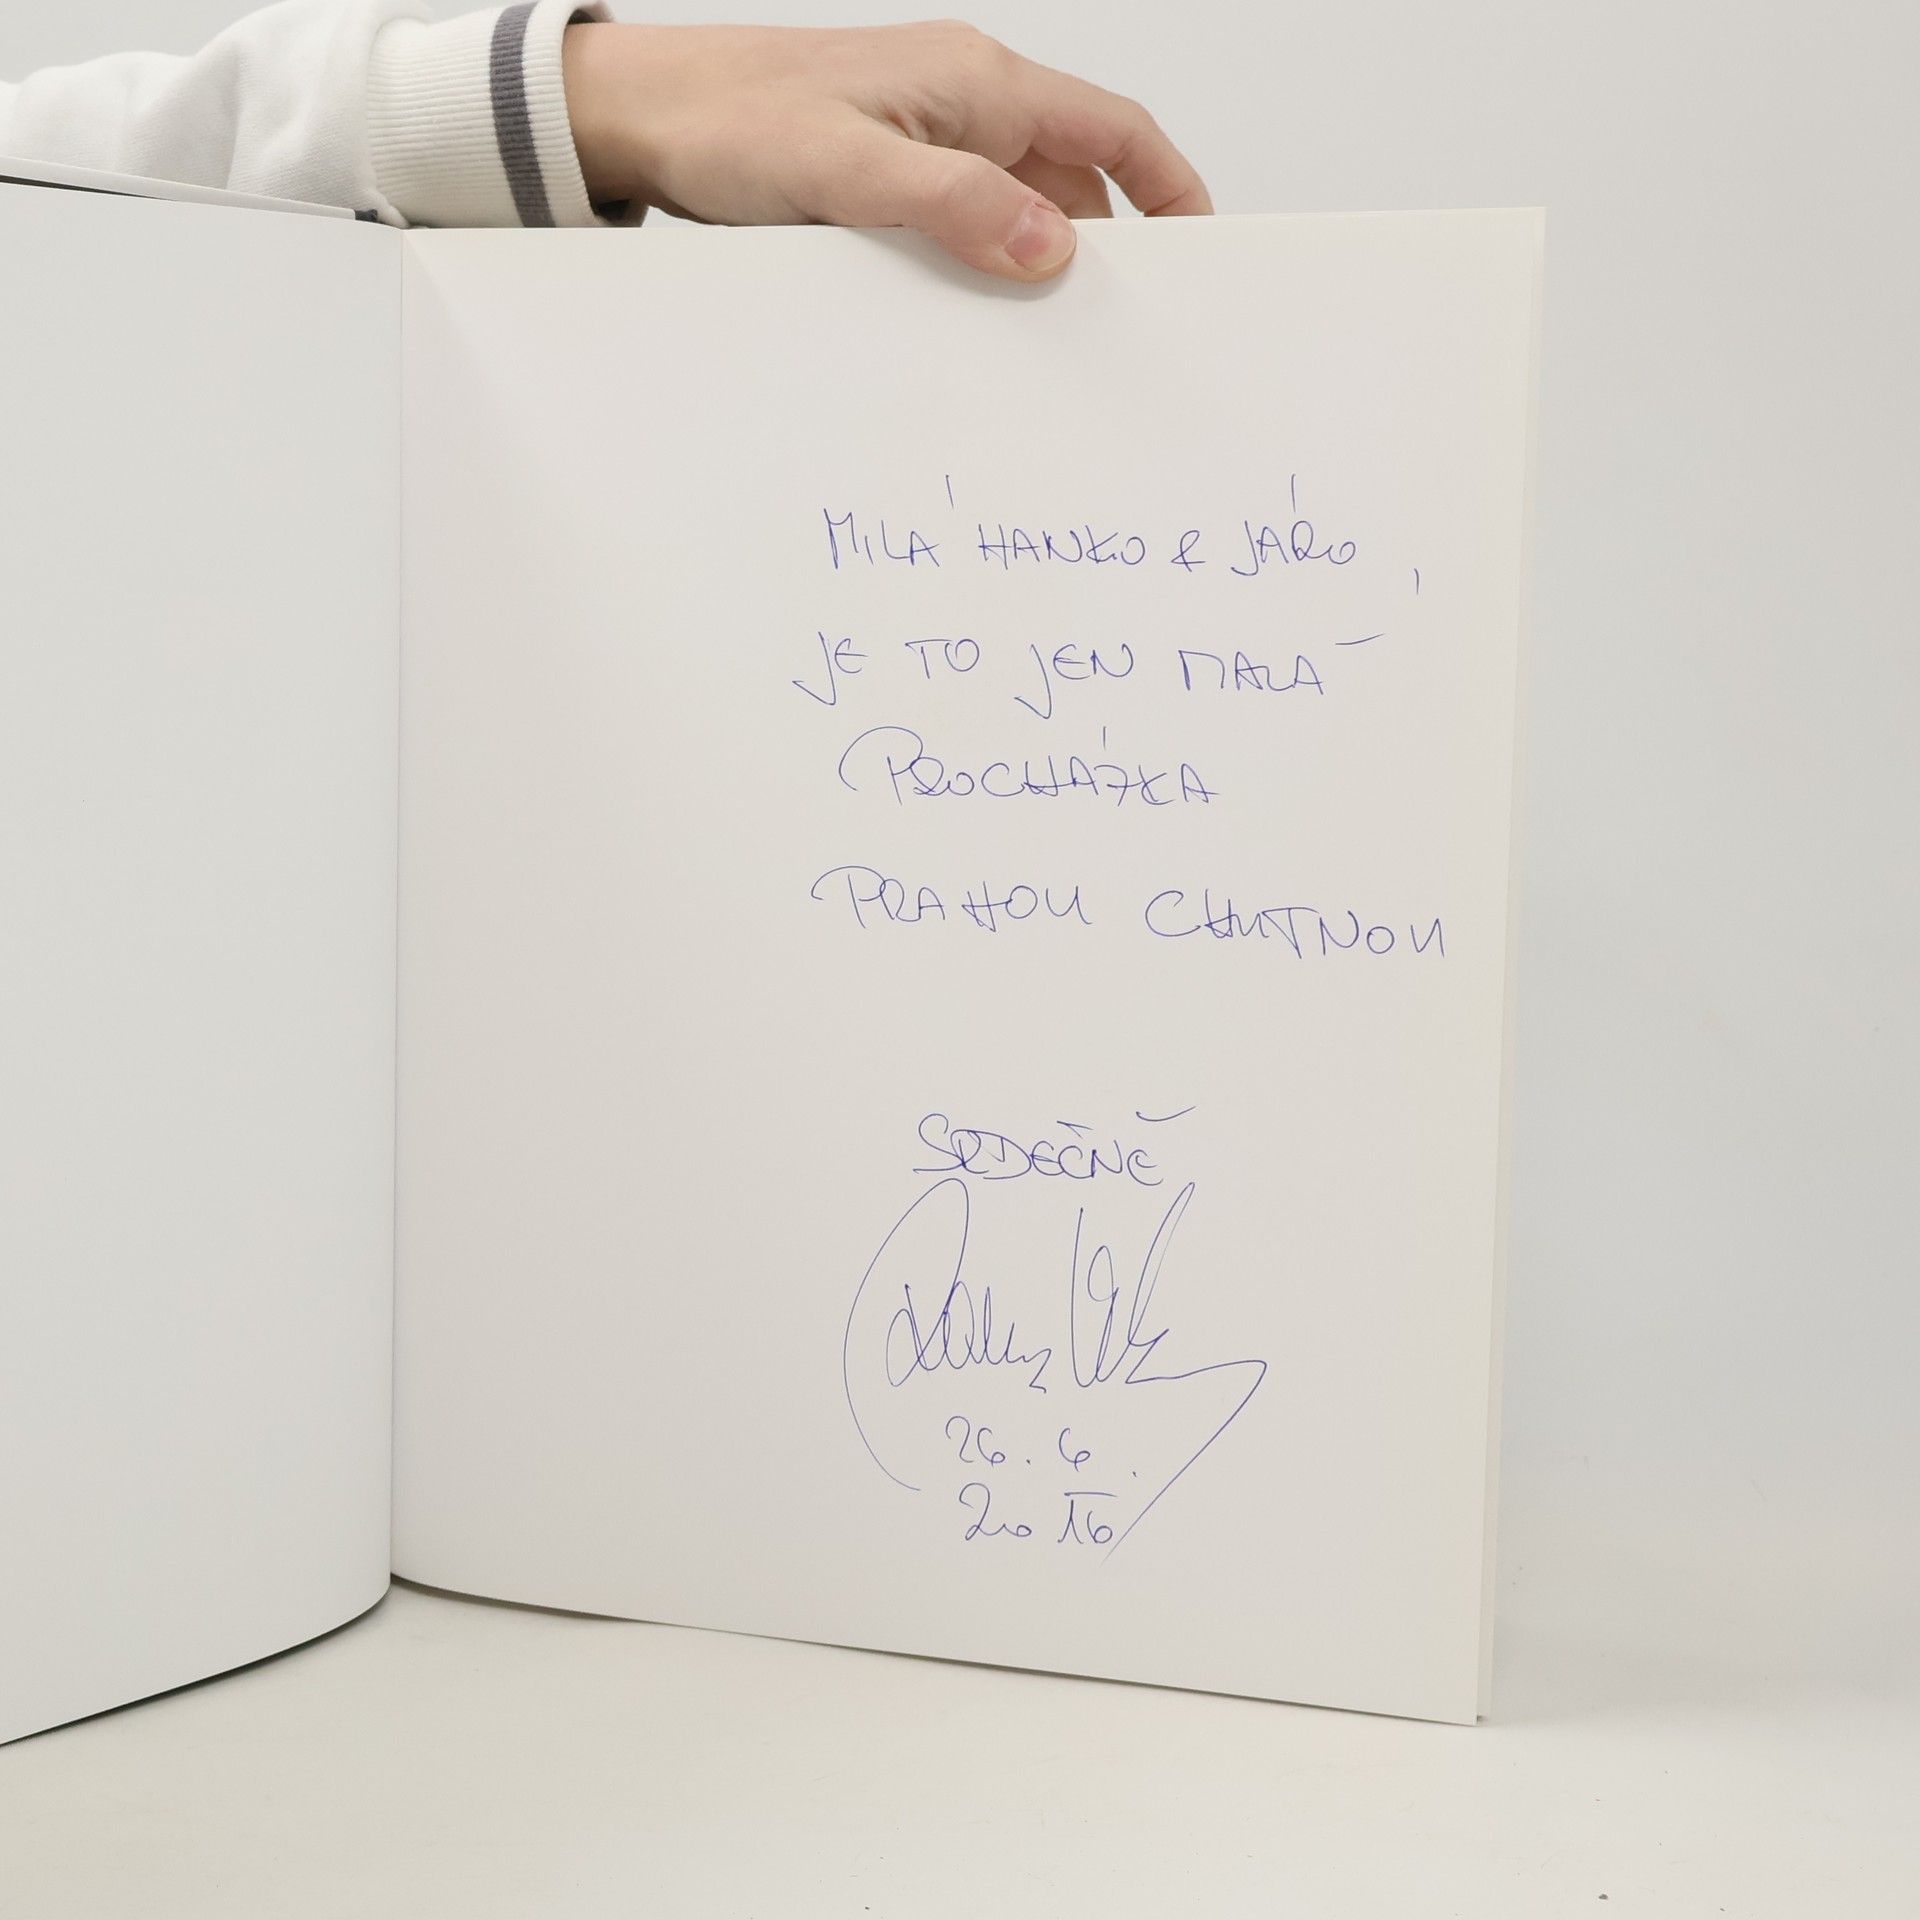 MILÁ HANKO & JÁRO,
JE TO JEN MALÁ
PROCHÁZKA
PRAHOU CHUTNOU
SRDEČNĚ
26. 6.
2016